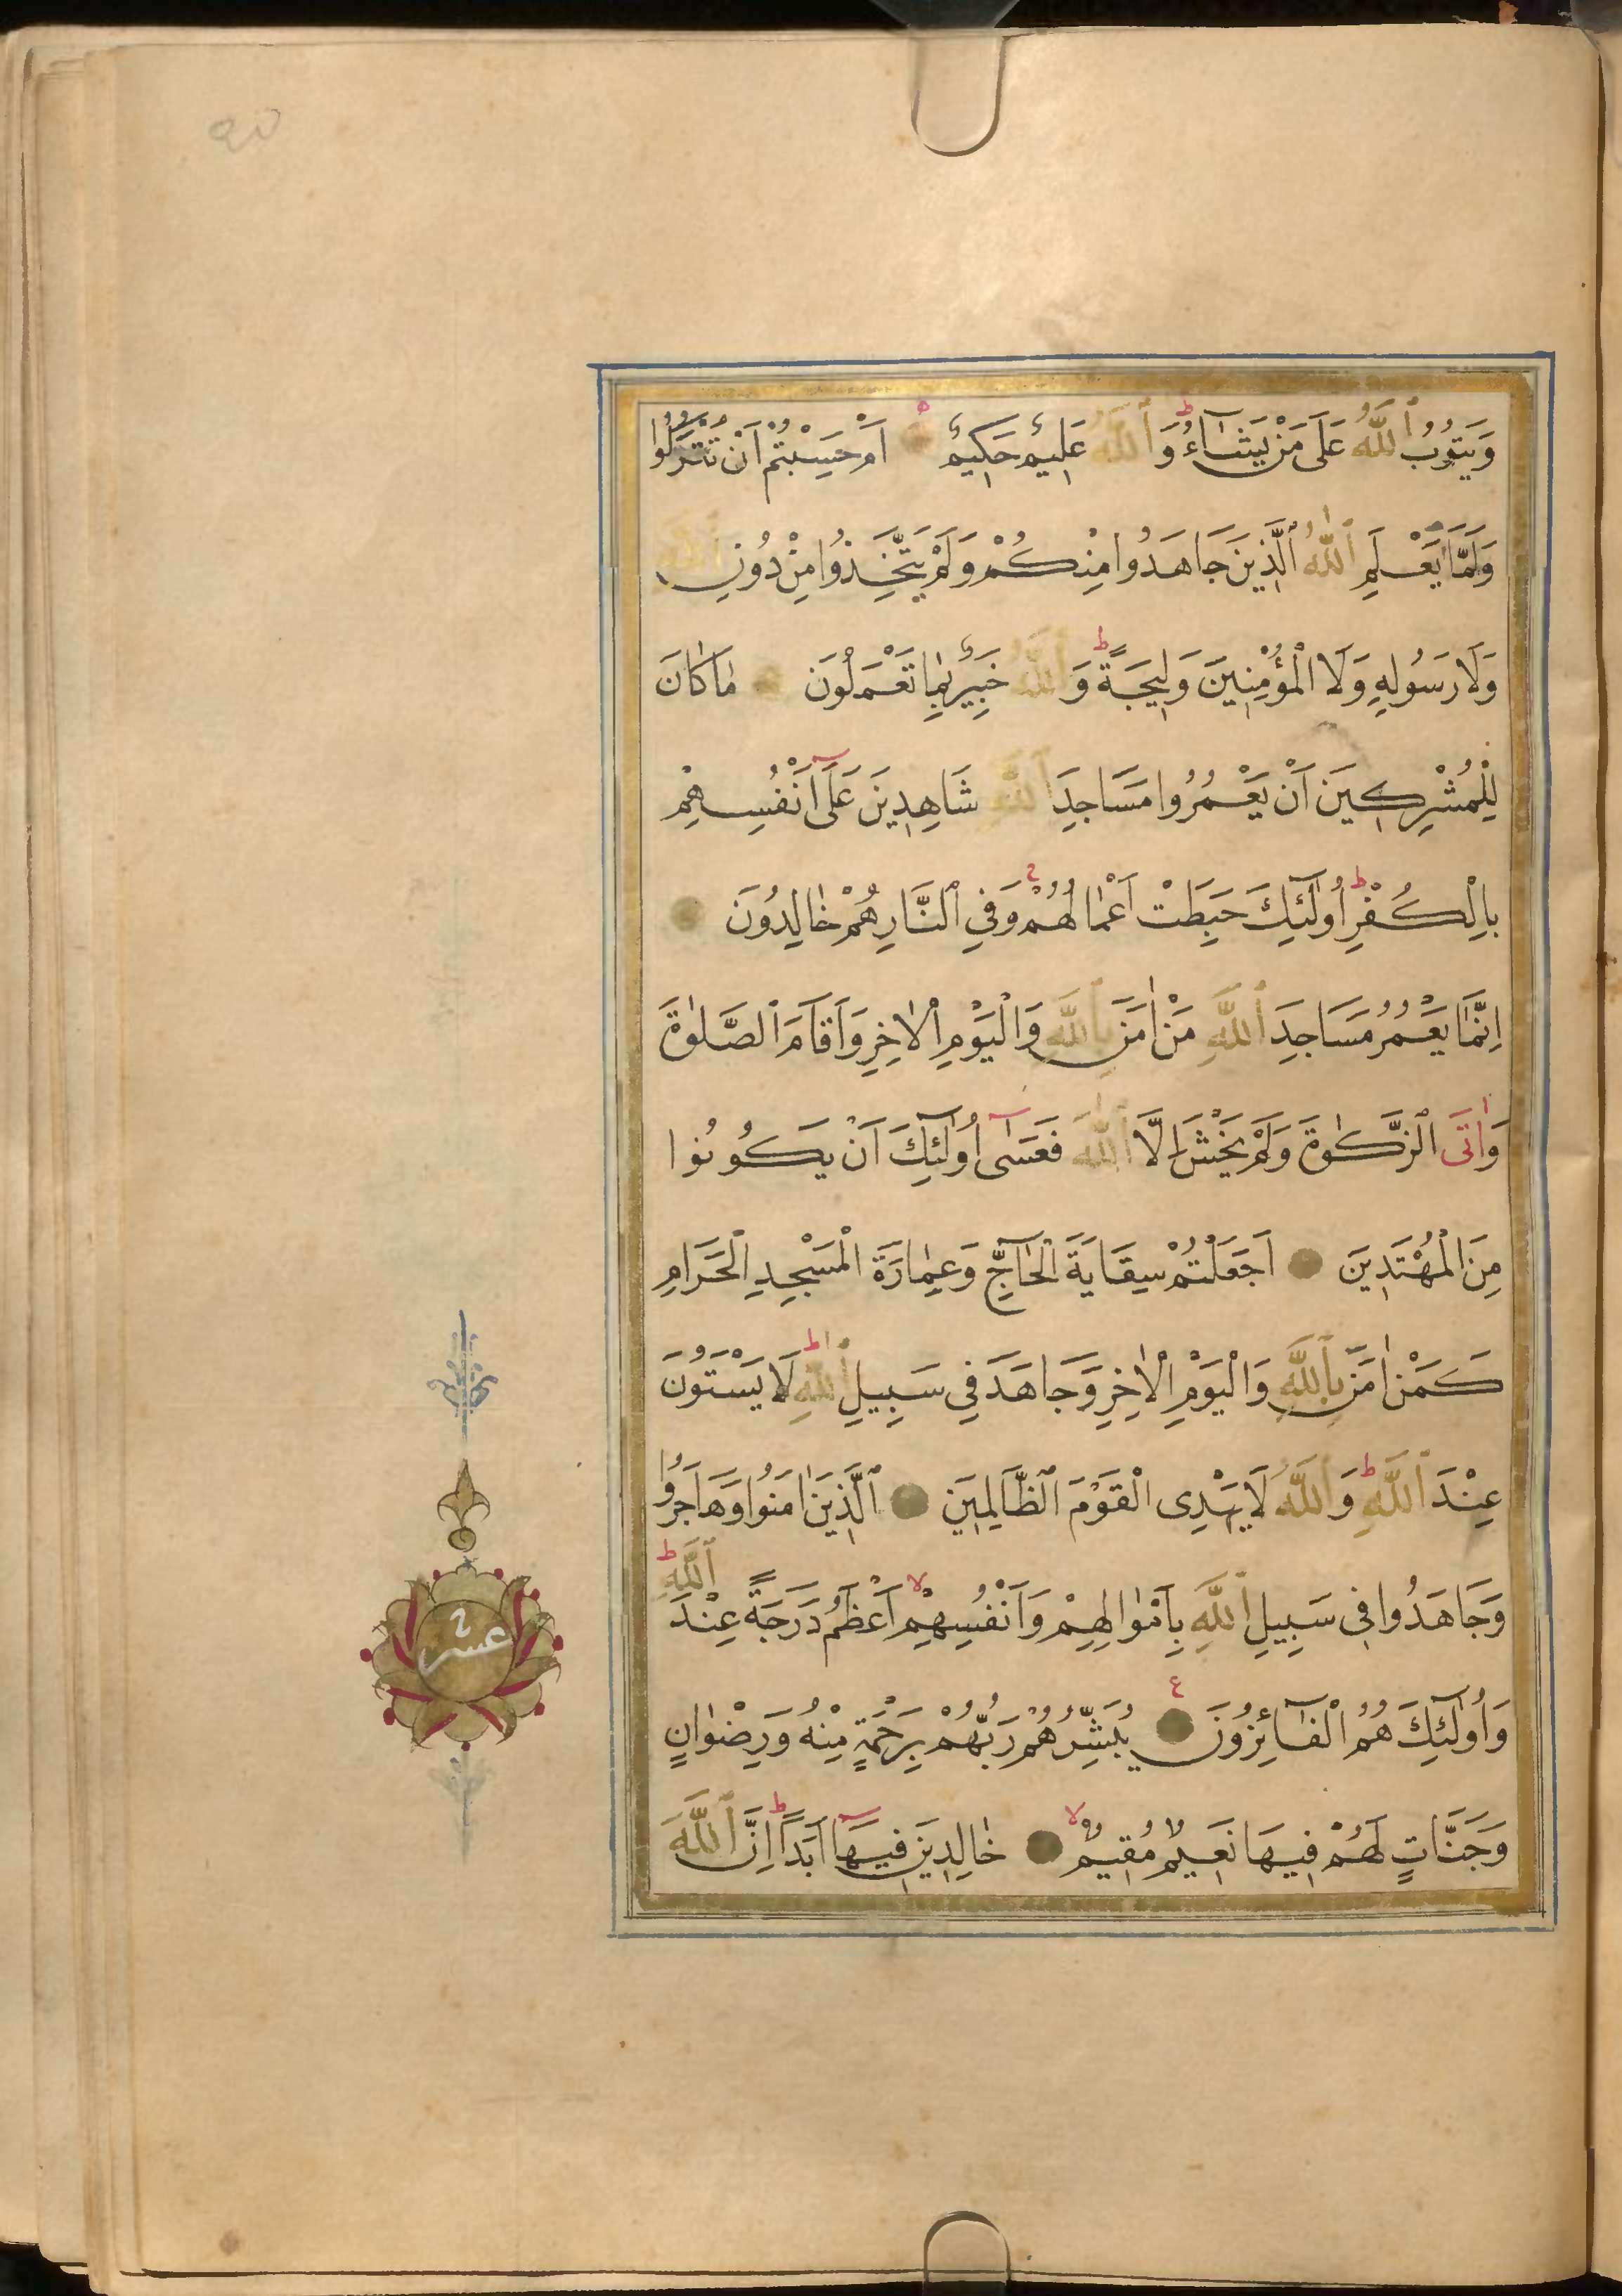 وَيَتُوبُ ٱللَّهُ عَلَى مَنْ يَشَآءُ ط وَٱللَّهُ عَلِيمٌ حَكِيمٌ اَمْ حَسِبْتُمْ اَنْ تُتْرَكُوا
وَلَمَّا يَعْلَمِ ٱللّٰهُ ٱلَّذِينَ جَاهَدُوا مِنْكُمْ وَلَمْ يَتَّخِذُوا مِنْ دُونِ ٱللَّهِ
وَلَا رَسُولِهِ وَلَا الْمُؤْمِنِينَ وَلِيجَةً ط وَٱللَّهُ خَبِيرٌ بِمَا تَعْمَلُونَ مَا كَانَ
لِلْمُشْرِكِينَ اَنْ يَعْمُرُوا مَسَاجِدَ ٱللَّهِ شَاهِدِينَ عَلَى اَنْفُسِهِمْ
بِالْكُفْرِ ط اُولٰٓئِكَ حَبِطَتْ اَعْمَالُهُمْ وَفِي ٱلنَّارِ هُمْ خَالِدُونَ
اِنَّمَا يَعْمُرُ مَسَاجِدَ ٱللَّهِ مَنْ اٰمَنَ بِٱللَّهِ وَالْيَوْمِ الْاٰخِرِ وَاَقَامَ ٱلصَّلٰوةَ
وَاٰتَى الزَّكٰوةَ وَلَمْ يَخْشَ اِلَّا ٱللّٰهَ فَعَسٰٓى اُولٰٓئِكَ اَنْ يَكُونُوا
مِنَ الْمُهْتَدِينَ اَجَعَلْتُمْ سِقَايَةَ الْحَآجِّ وَعِمَارَةَ الْمَسْجِدِ الْحَرَامِ
كَمَنْ اٰمَنَ بِٱللَّهِ وَالْيَوْمِ الْاٰخِرِ وَجَاهَدَ فِي سَبِيلِ ٱللّٰهِ ط لَا يَسْتَوُنَ
عِنْدَ ٱللَّهِ ط وَٱللَّهُ لَا يَهْدِى الْقَوْمَ ٱلظَّالِمِينَ ٱلَّذِينَ اٰمَنُوا وَهَاجَرُوا
وَجَاهَدُوا فِي سَبِيلِ ٱللَّهِ بِاَمْوَالِهِمْ وَاَنْفُسِهِمْ لا اَعْظَمُ دَرَجَةً عِنْدَ ٱللَّهِ ط
وَاُولٰٓئِكَ هُمُ الْفَآئِزُونَ ع يُبَشِّرُهُمْ رَبُّهُمْ بِرَحْمَةٍ مِنْهُ وَرِضْوَانٍ
وَجَنَّاتٍ لَهُمْ فِيهَا نَعِيمٌ مُقِيمٌ لا خَالِدِينَ فِيهَا اَبَدًا ط اِنَّ ٱللَّهَ
عشر